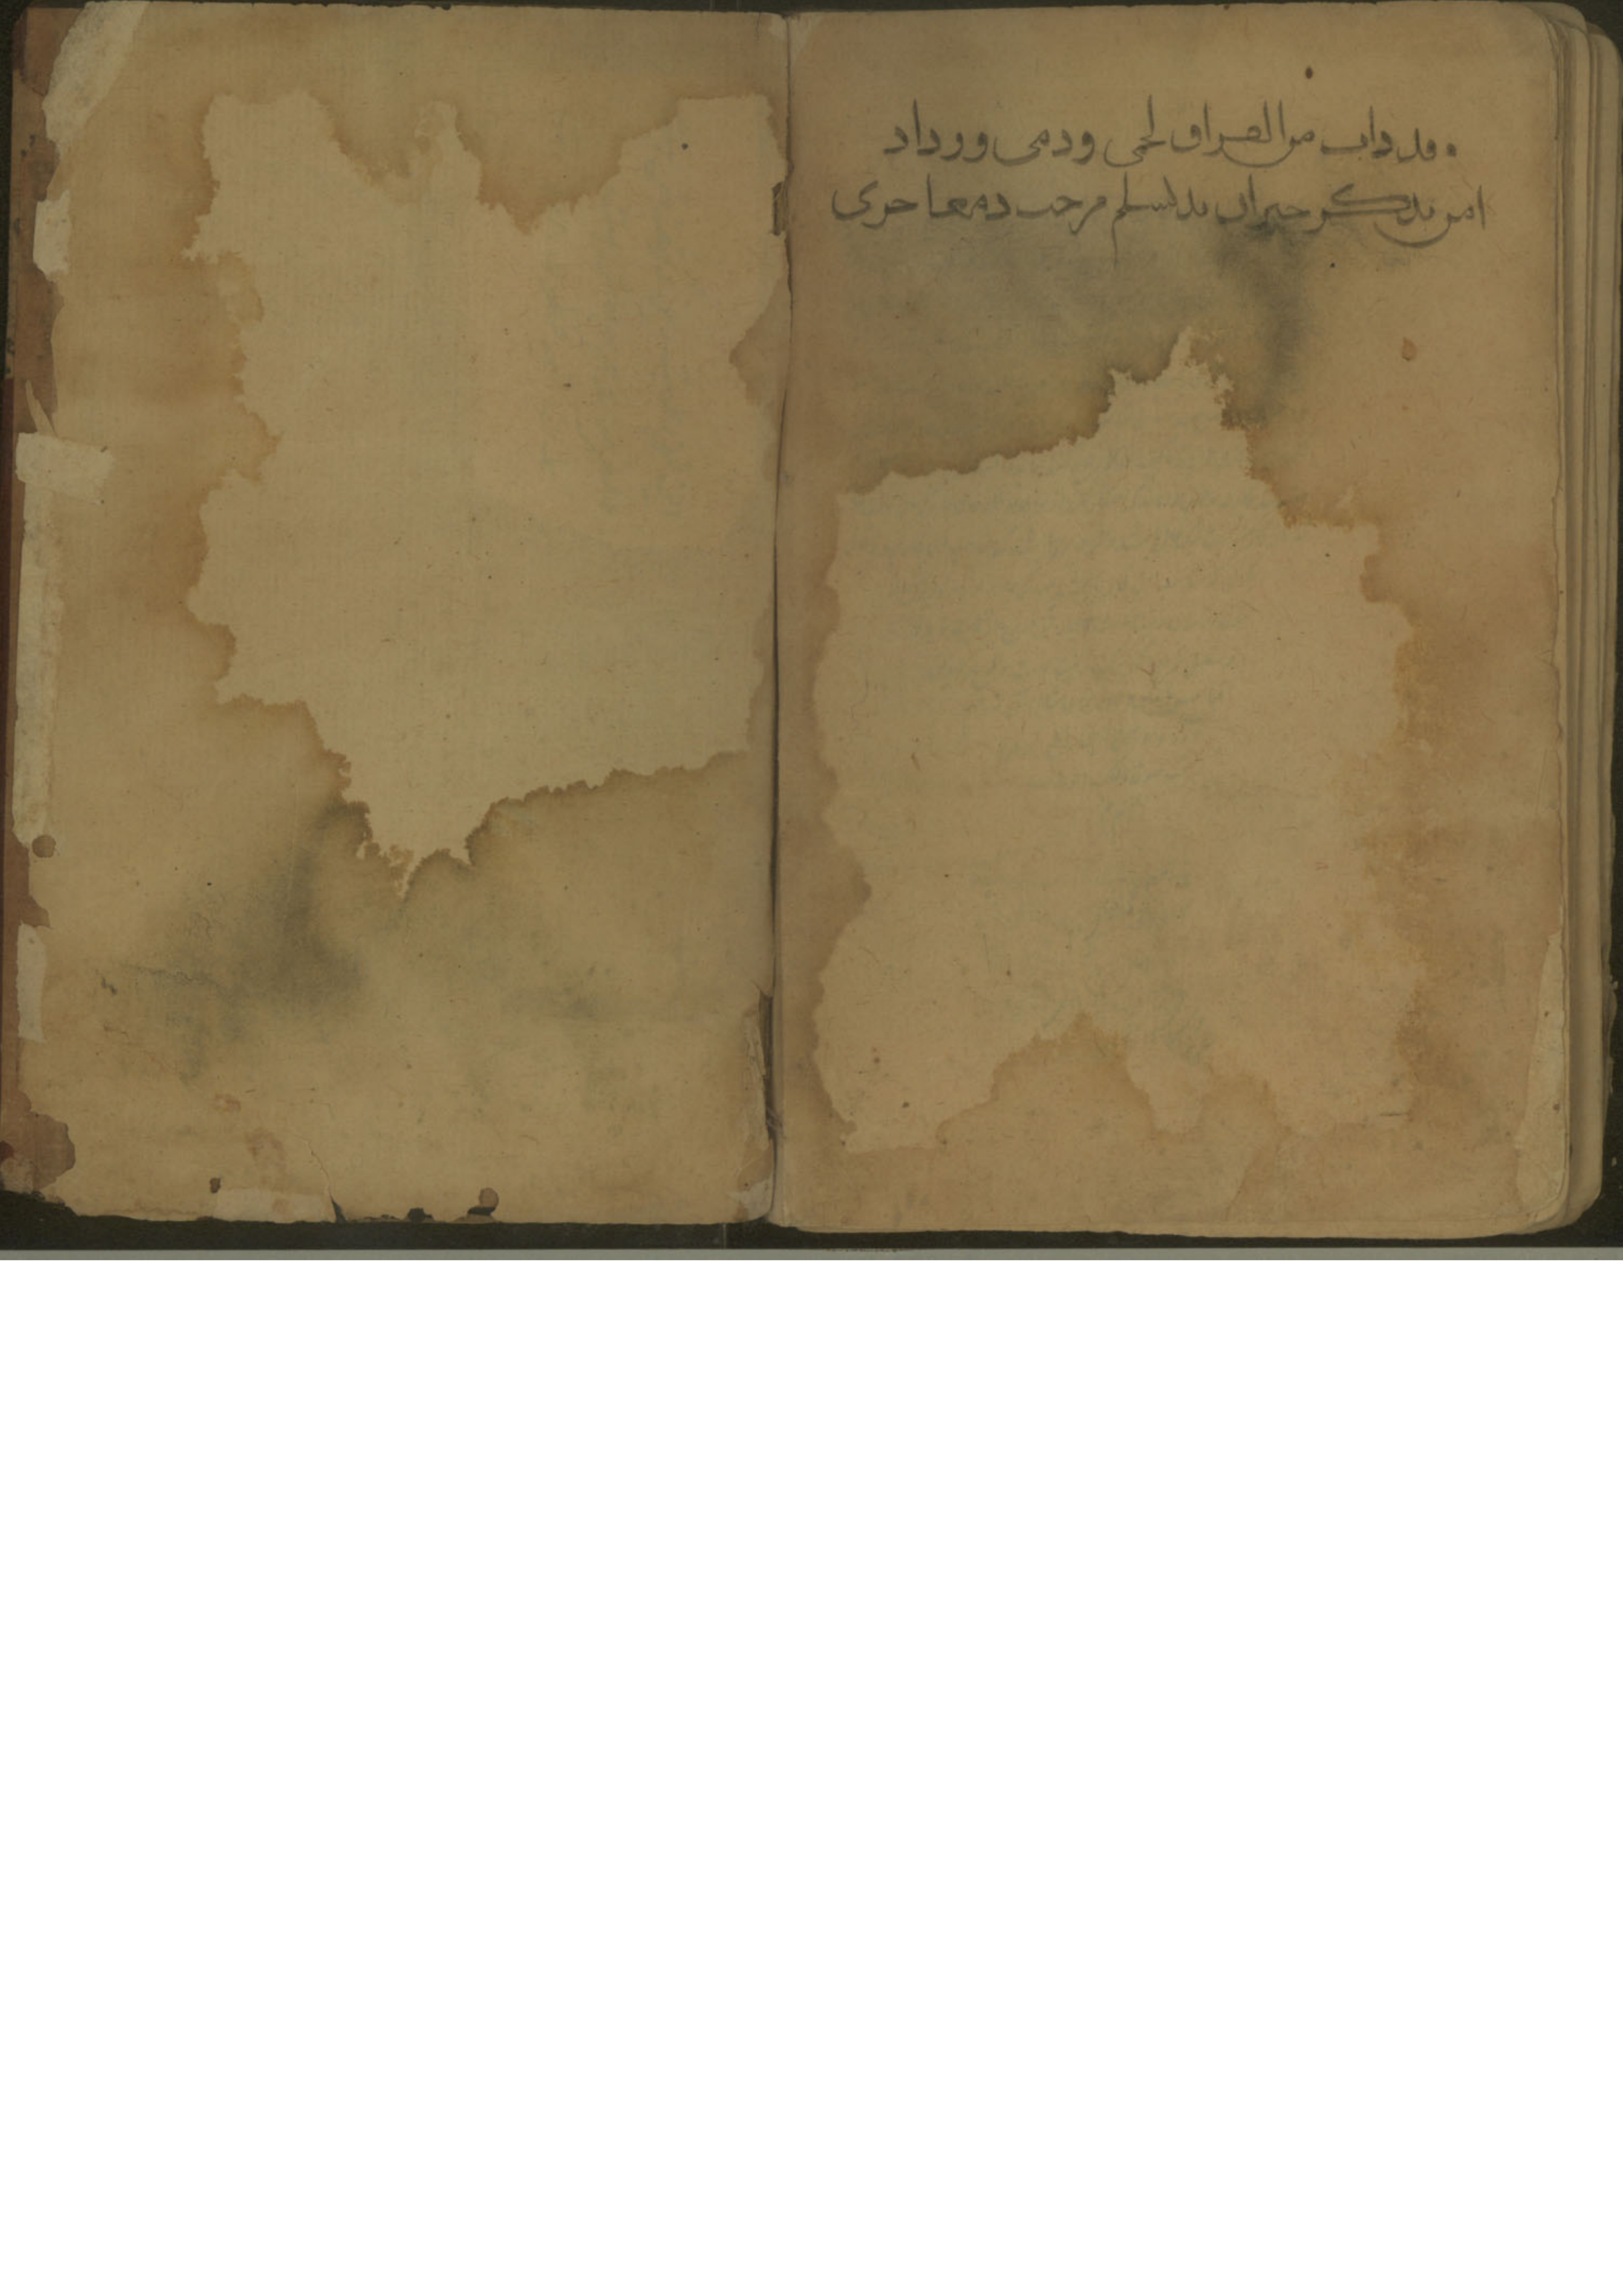 قد داب من الفراق لحمى ودمى وزداد
امن تذكر جيران بذى سلم مزجت دمعا جرى